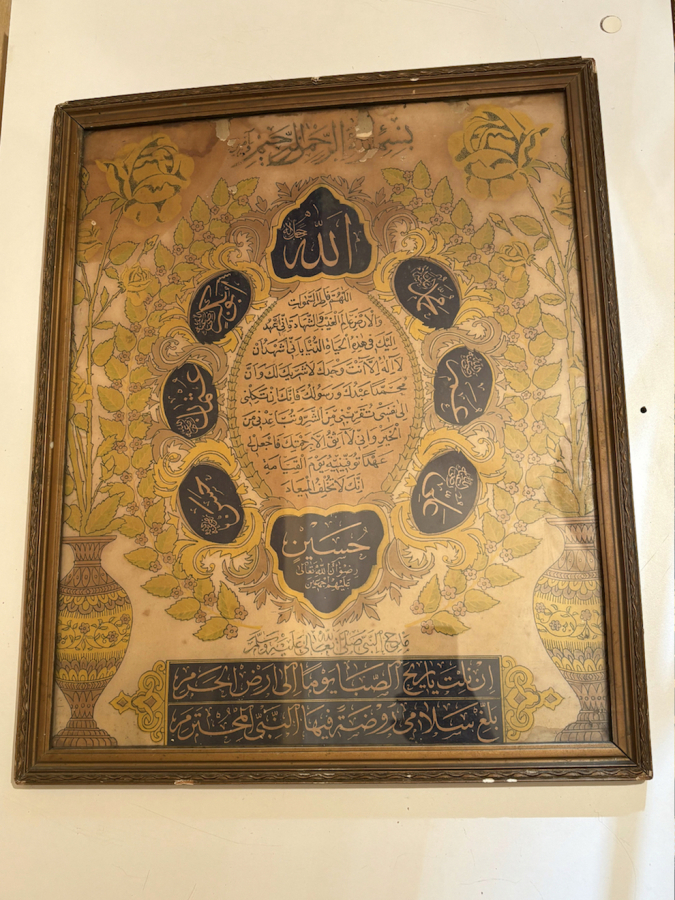 بسم الله الرحمن الرحيم
الله جل جلاله
محمد
ابو بكر
عمر
عثمان
علي
حسن
اللهم فاطر السموات
والارض عالم الغيب والشهادة اني اعهد
اليك في هذه الحياة الدنيا باني اشهد ان
لا اله الا انت وحدك لا شريك لك وان
محمدا عبدك ورسولك فانك ان تكلني
الى نفسي تقربني من الشر وتباعدني من
الخير واني لا اثق الا برحمتك فاجعل لي
عهدا توفينيه يوم القيامة
انك لا تخلف الميعاد
حسين
رضوان الله تعالى
عليهم اجمعين
النبي صلى الله تعالى عليه وسلم
ان نلت يا ريح الصبا يوما الى ارض الحرم
بلغ سلامي روضة فيها النبي المحترم